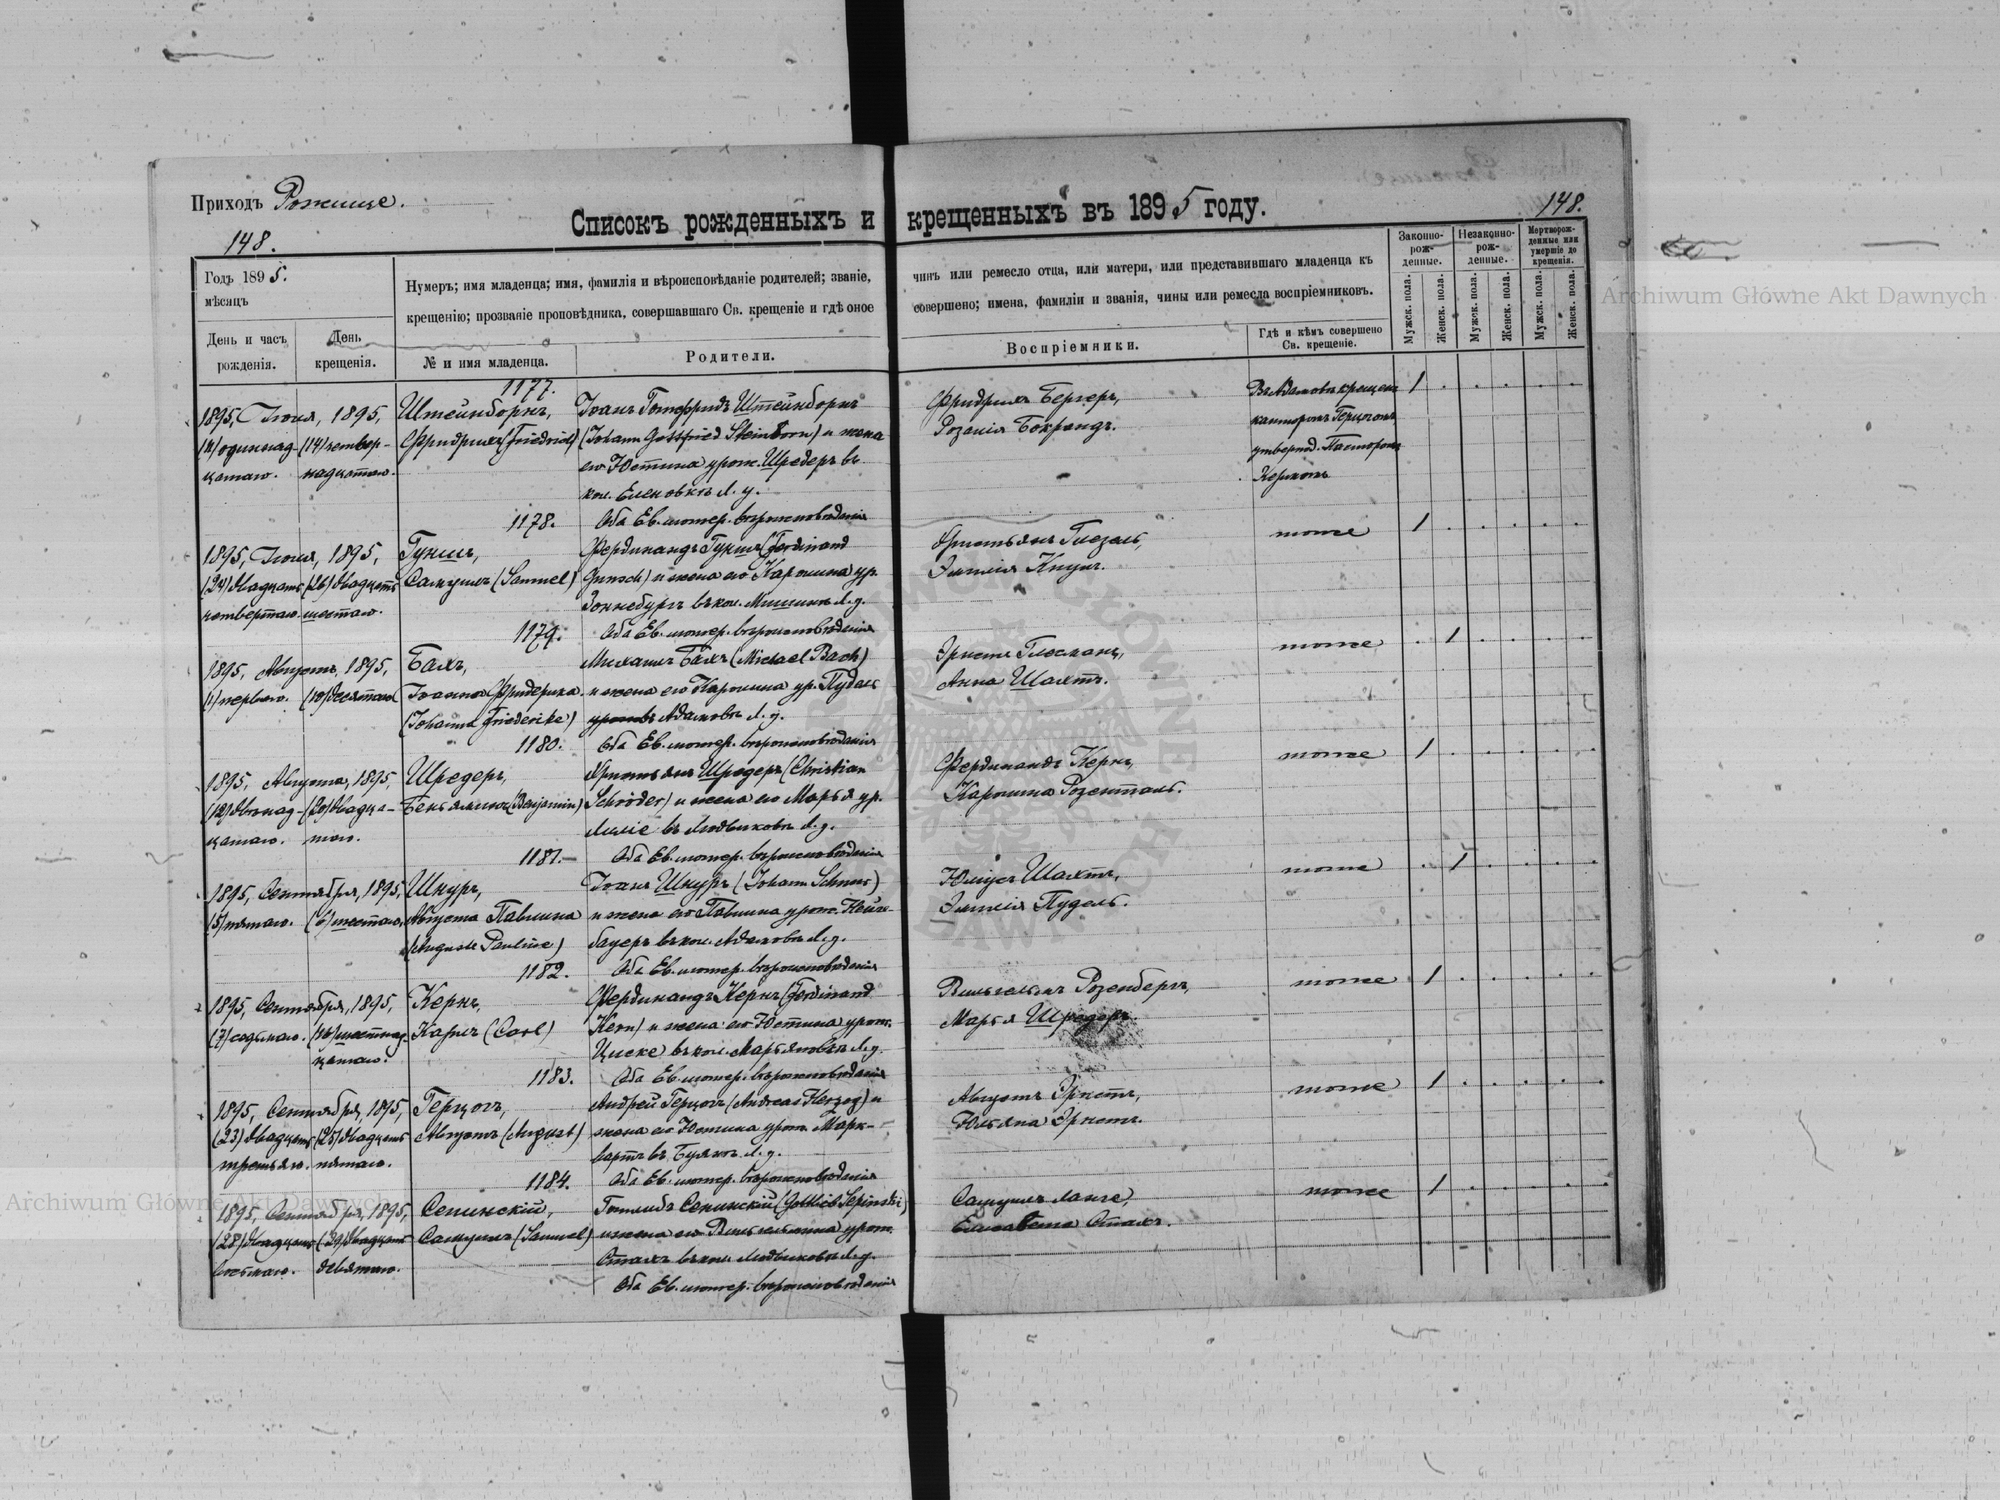 Приходъ Рожище.
148.
148.
Списокъ рожденныхъ и крещенныхъ въ 1895 году.
Годъ 1895.
мѣсяцъ
День и часъ
рожденія.
День
крещенія.
Нумеръ; имя младенца; имя, фамилія и вѣроисповѣданіе родителей; званіе,
крещенію; прозваніе проповѣдника, совершавшаго Св. крещеніе и гдѣ оное
№ и имя младенца.
Родители.
чинъ или ремесло отца, или матери, или представившаго младенца къ
совершено; имена, фамиліи и званія, чины или ремесла воспріемниковъ.
Воспріемники.
Гдѣ и кѣмъ совершено
Св. крещеніе.
Законно-
рож-
денные.
Незаконно-
рож-
денные.
Мертворож-
денные или
умершіе до
крещенія.
Мужск. пола.
Женск. пола.
Мужск. пола.
Женск. пола.
Мужск. пола.
Женск. пола.
1177.
1895, Іюня, 1895,
(11) одиннад-
цатаго.
(14) четвер-
надцатаго.
Штейнборнъ,
Фридрихъ (Friedrich)
Іоанъ Готфридъ Штейнборнъ
(Johann Gottfried Steinborn) и жена
его Юстина урож. Шредеръ въ
кол. Еленовкѣ Л. у.
Оба Ев. лютер. вѣроисповѣданія
Фридрихъ Бергеръ,
Розалія Бокрандъ.
Въ Адамовѣ крещенъ
канторомъ
утвержд. Пасторомъ
Керномъ
1
1178.
1895, Іюня, 1895,
(24) двадцать
четвертаго.
(26) двадцать
шестаго.
Гуншъ,
Самуилъ (Samuel)
Фердинандъ Гуншъ (Ferdinand
Gunsch) и жена его Каролина ур.
Зоннебургъ въ кол. Л. у.
Оба Ев. лютер. вѣроисповѣданія
Христьянъ Глезель,
Эмилія Кнулъ.
тоже
1
1179.
1895, Августа, 1895,
(1) перваго.
(10) десятаго
Бахъ,
Іоанна Фридерика
(Johanna Friederike)
Михаилъ Бахъ (Michael Bach)
и жена его Каролина ур. Пудель
Адамовѣ Л. у.
Оба Ев. лютер. вѣроисповѣданія
Анна Шахтъ.
тоже
1
1180.
1895, Августа, 1895,
(12) двѣнад-
цатаго.
(20) двадца-
таго.
Шредеръ,
Беньяминъ (Benjamin)
Христьянъ Шредеръ (Christian
Schröder) и жена его Марья ур.
въ Людвиковѣ Л. у.
Оба Ев. лютер. вѣроисповѣданія
Фердинандъ Кернъ,
Каролина Розенталь.
тоже
1
1181.
1895, Сентября, 1895,
(5) пятаго.
(6) шестаго.
Шнуръ,
Августа Павлина
(Auguste Pauline)
Іоанъ Шнуръ (Johann Schnur)
и жена его Павлина урож. Ней-
бауеръ въ кол. Адамовѣ Л. у.
Оба Ев. лютер. вѣроисповѣданія
Юліусъ Шахтъ,
Эмилія Пудель.
тоже
1
1182.
1895, Сентября, 1895,
(7) седьмаго.
(16) шестнад-
цатаго.
Кернъ,
Карлъ (Carl)
Фердинандъ Кернъ (Ferdinand
Kern) и жена его Юстина урож.
Циске въ кол. Марьяновкѣ Л. у.
Оба Ев. лютер. вѣроисповѣданія
Вильгельмъ Розенбергъ,
Марья Шредеръ.
тоже
1
1183.
1895, Сентября, 1895,
(23) двадцать
третьяго.
(25) двадцать
пятаго.
Герцогъ,
Августъ (August)
Андрей Герцогъ (Andreas Herzog) и
жена его Юстина урож. Марк-
вартъ въ Л. у.
Оба Ев. лютер. вѣроисповѣданія
Августъ Эрнстъ,
Юльяна Эрнстъ.
тоже
1
1184.
1895, Сентября, 1895,
(28) двадцать
восьмаго.
(29) двадцать
девятаго.
Сепинскій,
Самуилъ (Samuel)
Готлибъ Сепинскій (Gottlieb Sepinski)
и жена его Вильгельмина урож.
Сталхъ въ кол. Людвиковѣ Л. у.
Оба Ев. лютер. вѣроисповѣданія
Самуилъ Ланге,
Елисавета Сталхъ.
тоже
1
Archiwum Główne Akt Dawnych
Archiwum Główne Akt Dawnych